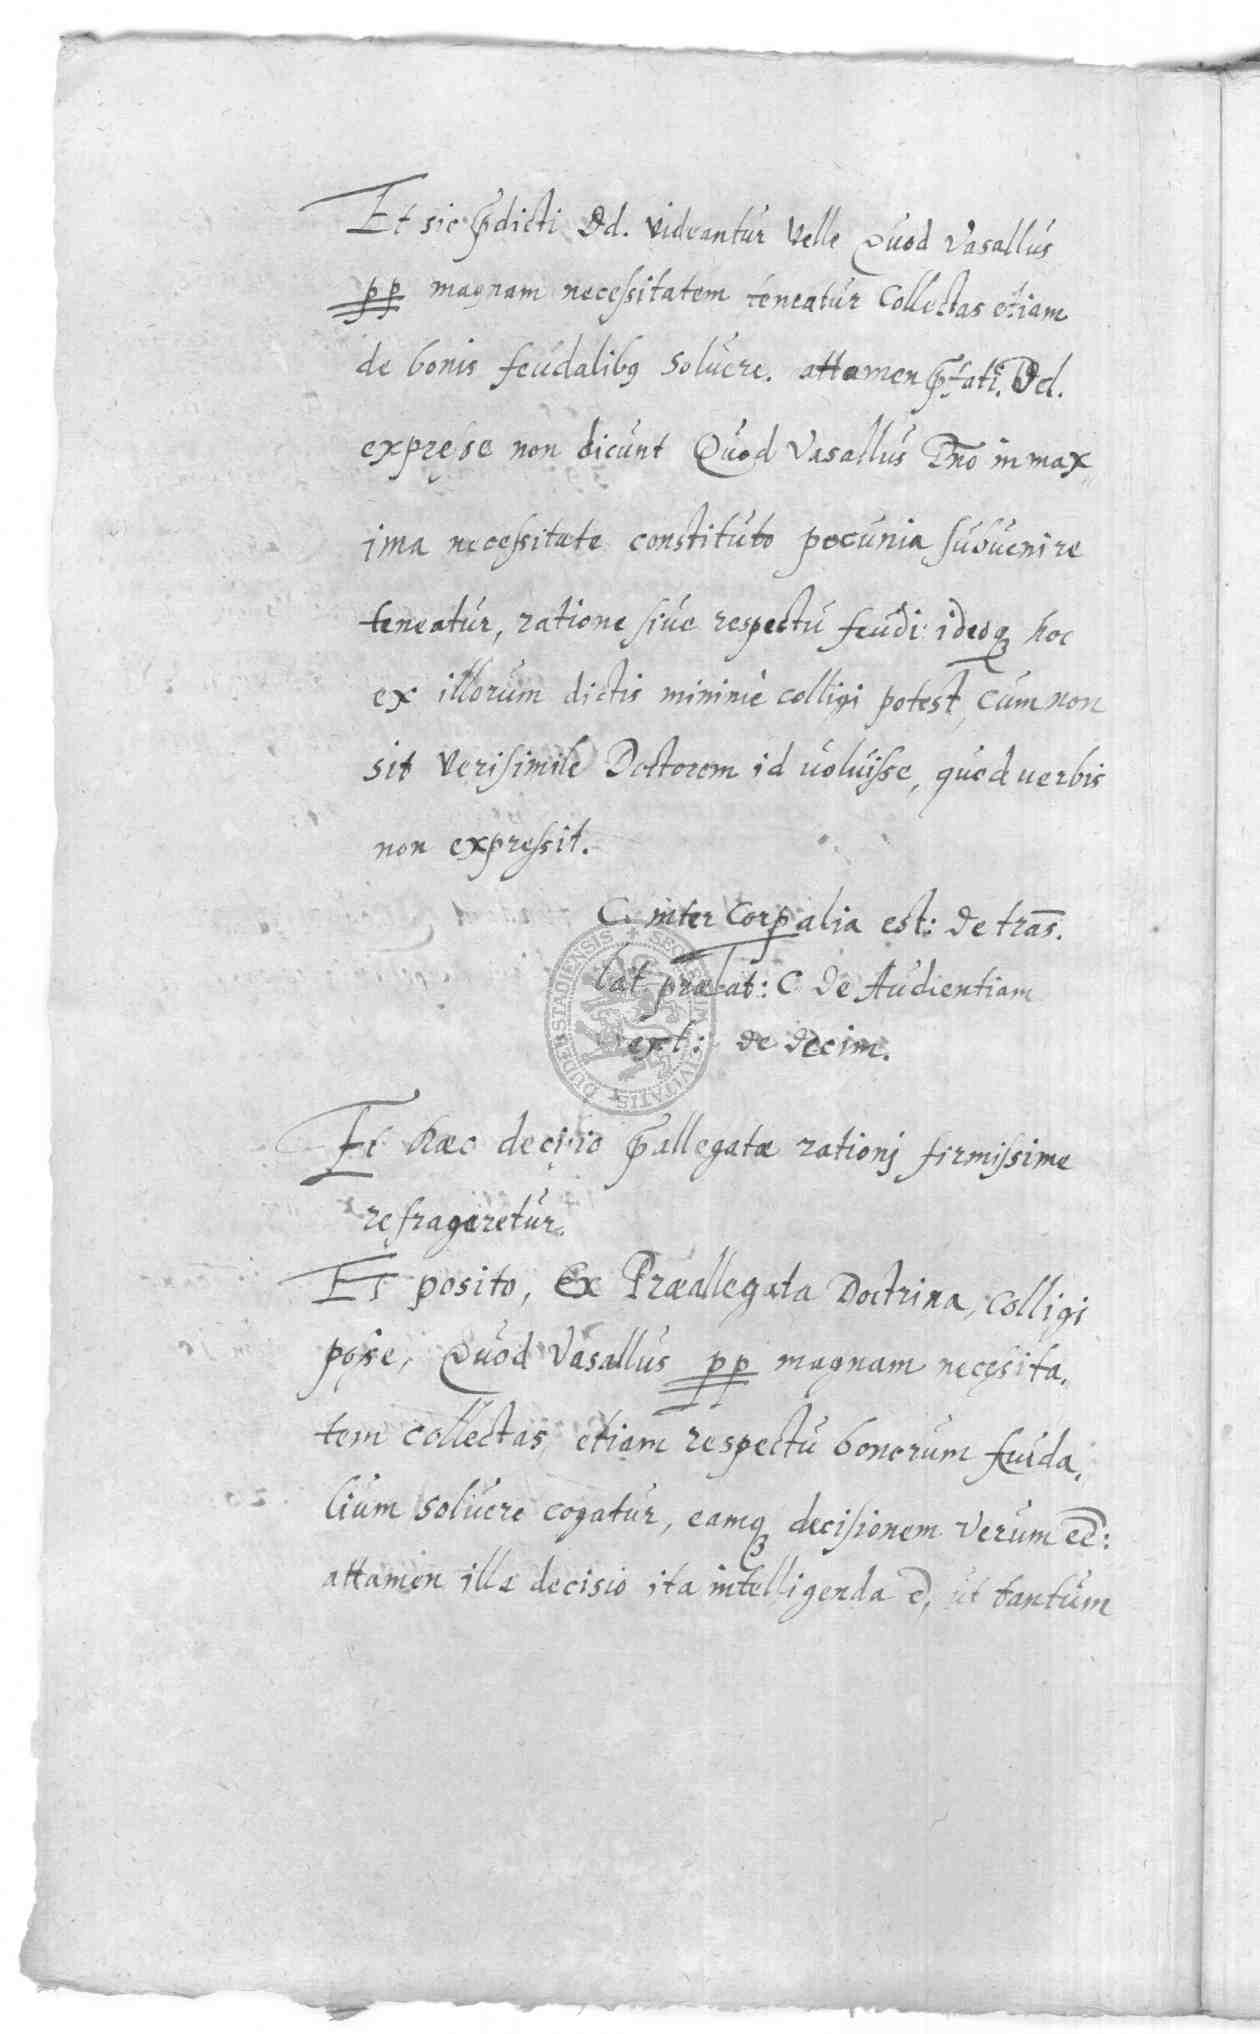 Et sic p̄dicti Dd. videantur velle Quod Vasallus
pp magnam necessitatem teneatur Collectas etiam
de bonis feudalibq soluere. attamen p̄fati. Dd.
exprese non dicunt Quod Vasallus Dno in max
ima necessitate constituto pecunia subuenire
teneatur, ratione siue respectu feudi: ideoq hoc
ex illorum dictis minimè colligi potest, cum non
sit verisimile Doctorem id uoluisse, quod uerbis
non expressit.
C. inter Corpalia est: de tras.
lat. prælat: C de Audientiam
ext: de decim.
Et hæc decisio p̄allegatæ rationi firmissime
refragaretur.
Et posito, ex Præallegata Doctrina, colligi
posse, Quod Vasallus pp magnam necessita,
tem collectas, etiam respectu bonorum feuda,
lium soluere cogatur, eamq decisionem verum eē:
attamen illa decisio ita intelligenda ē, ut tantum
SECRETUM CIVITATIS DUDERSTADIENSIS